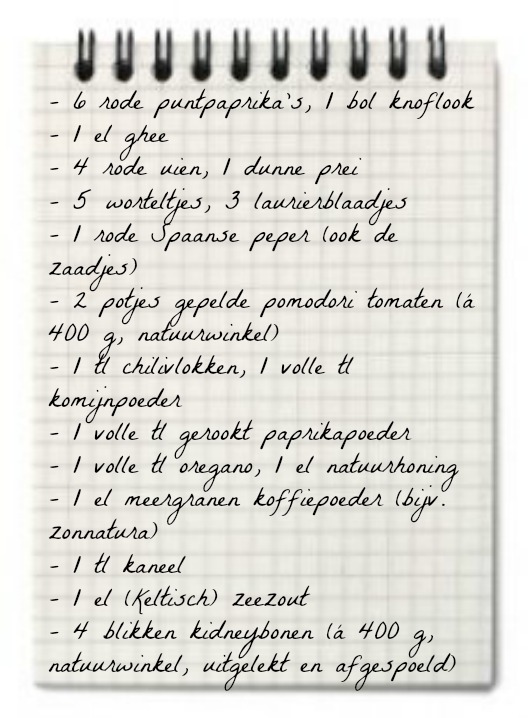 - 6 rode puntpaprika's, 1 bol knoflook
- 1 el ghee
- 4 rode uien, 1 dunne prei
- 5 worteltjes, 3 laurierblaadjes
- 1 rode Spaanse peper (ook de
zaadjes)
- 2 potjes gepelde pomodori tomaten (á
400 g, natuurwinkel)
- 1 tl chilivlokken, 1 volle tl
komijnpoeder
- 1 volle tl gerookt paprikapoeder
- 1 volle tl oregano, 1 el natuurhoning
- 1 el meergranen koffiepoeder (bijv.
zonnatura)
- 1 tl kaneel
- 1 el (Keltisch) zeezout
- 4 blikken kidneybonen (á 400 g,
natuurwinkel, uitgelekt en afgespoeld)